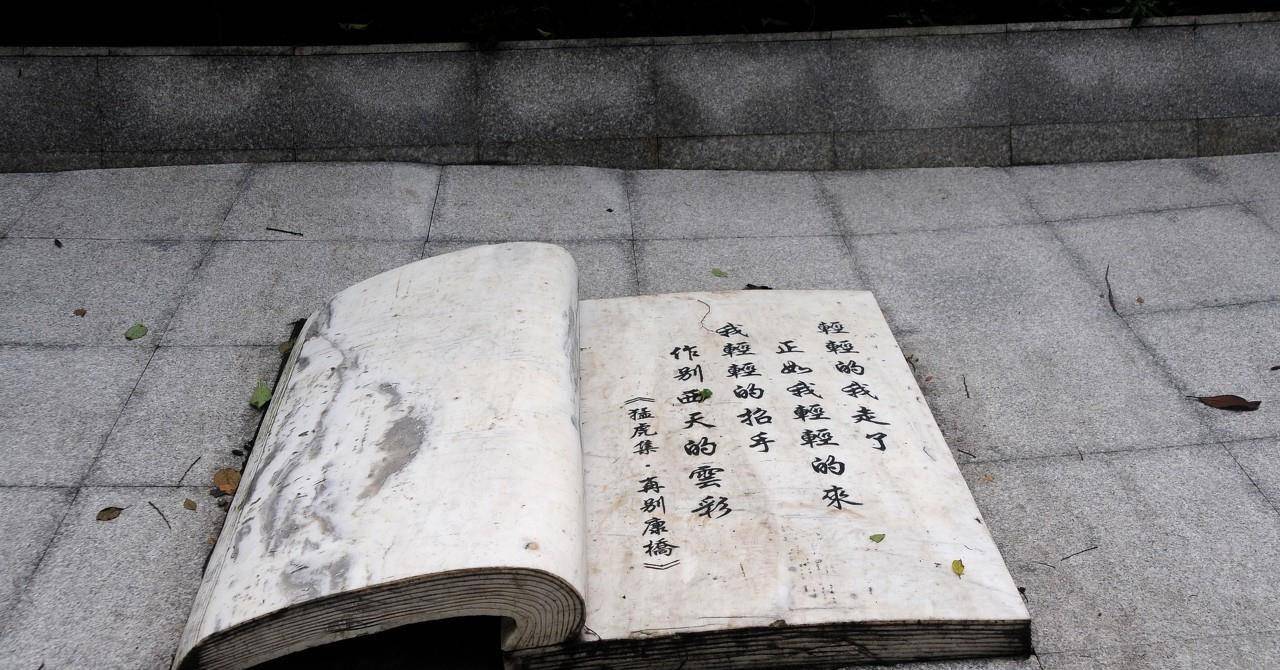 輕輕的我走了
正如我輕輕的來
我輕輕的招手
作別西天的雲彩
《猛虎集·再別康橋》